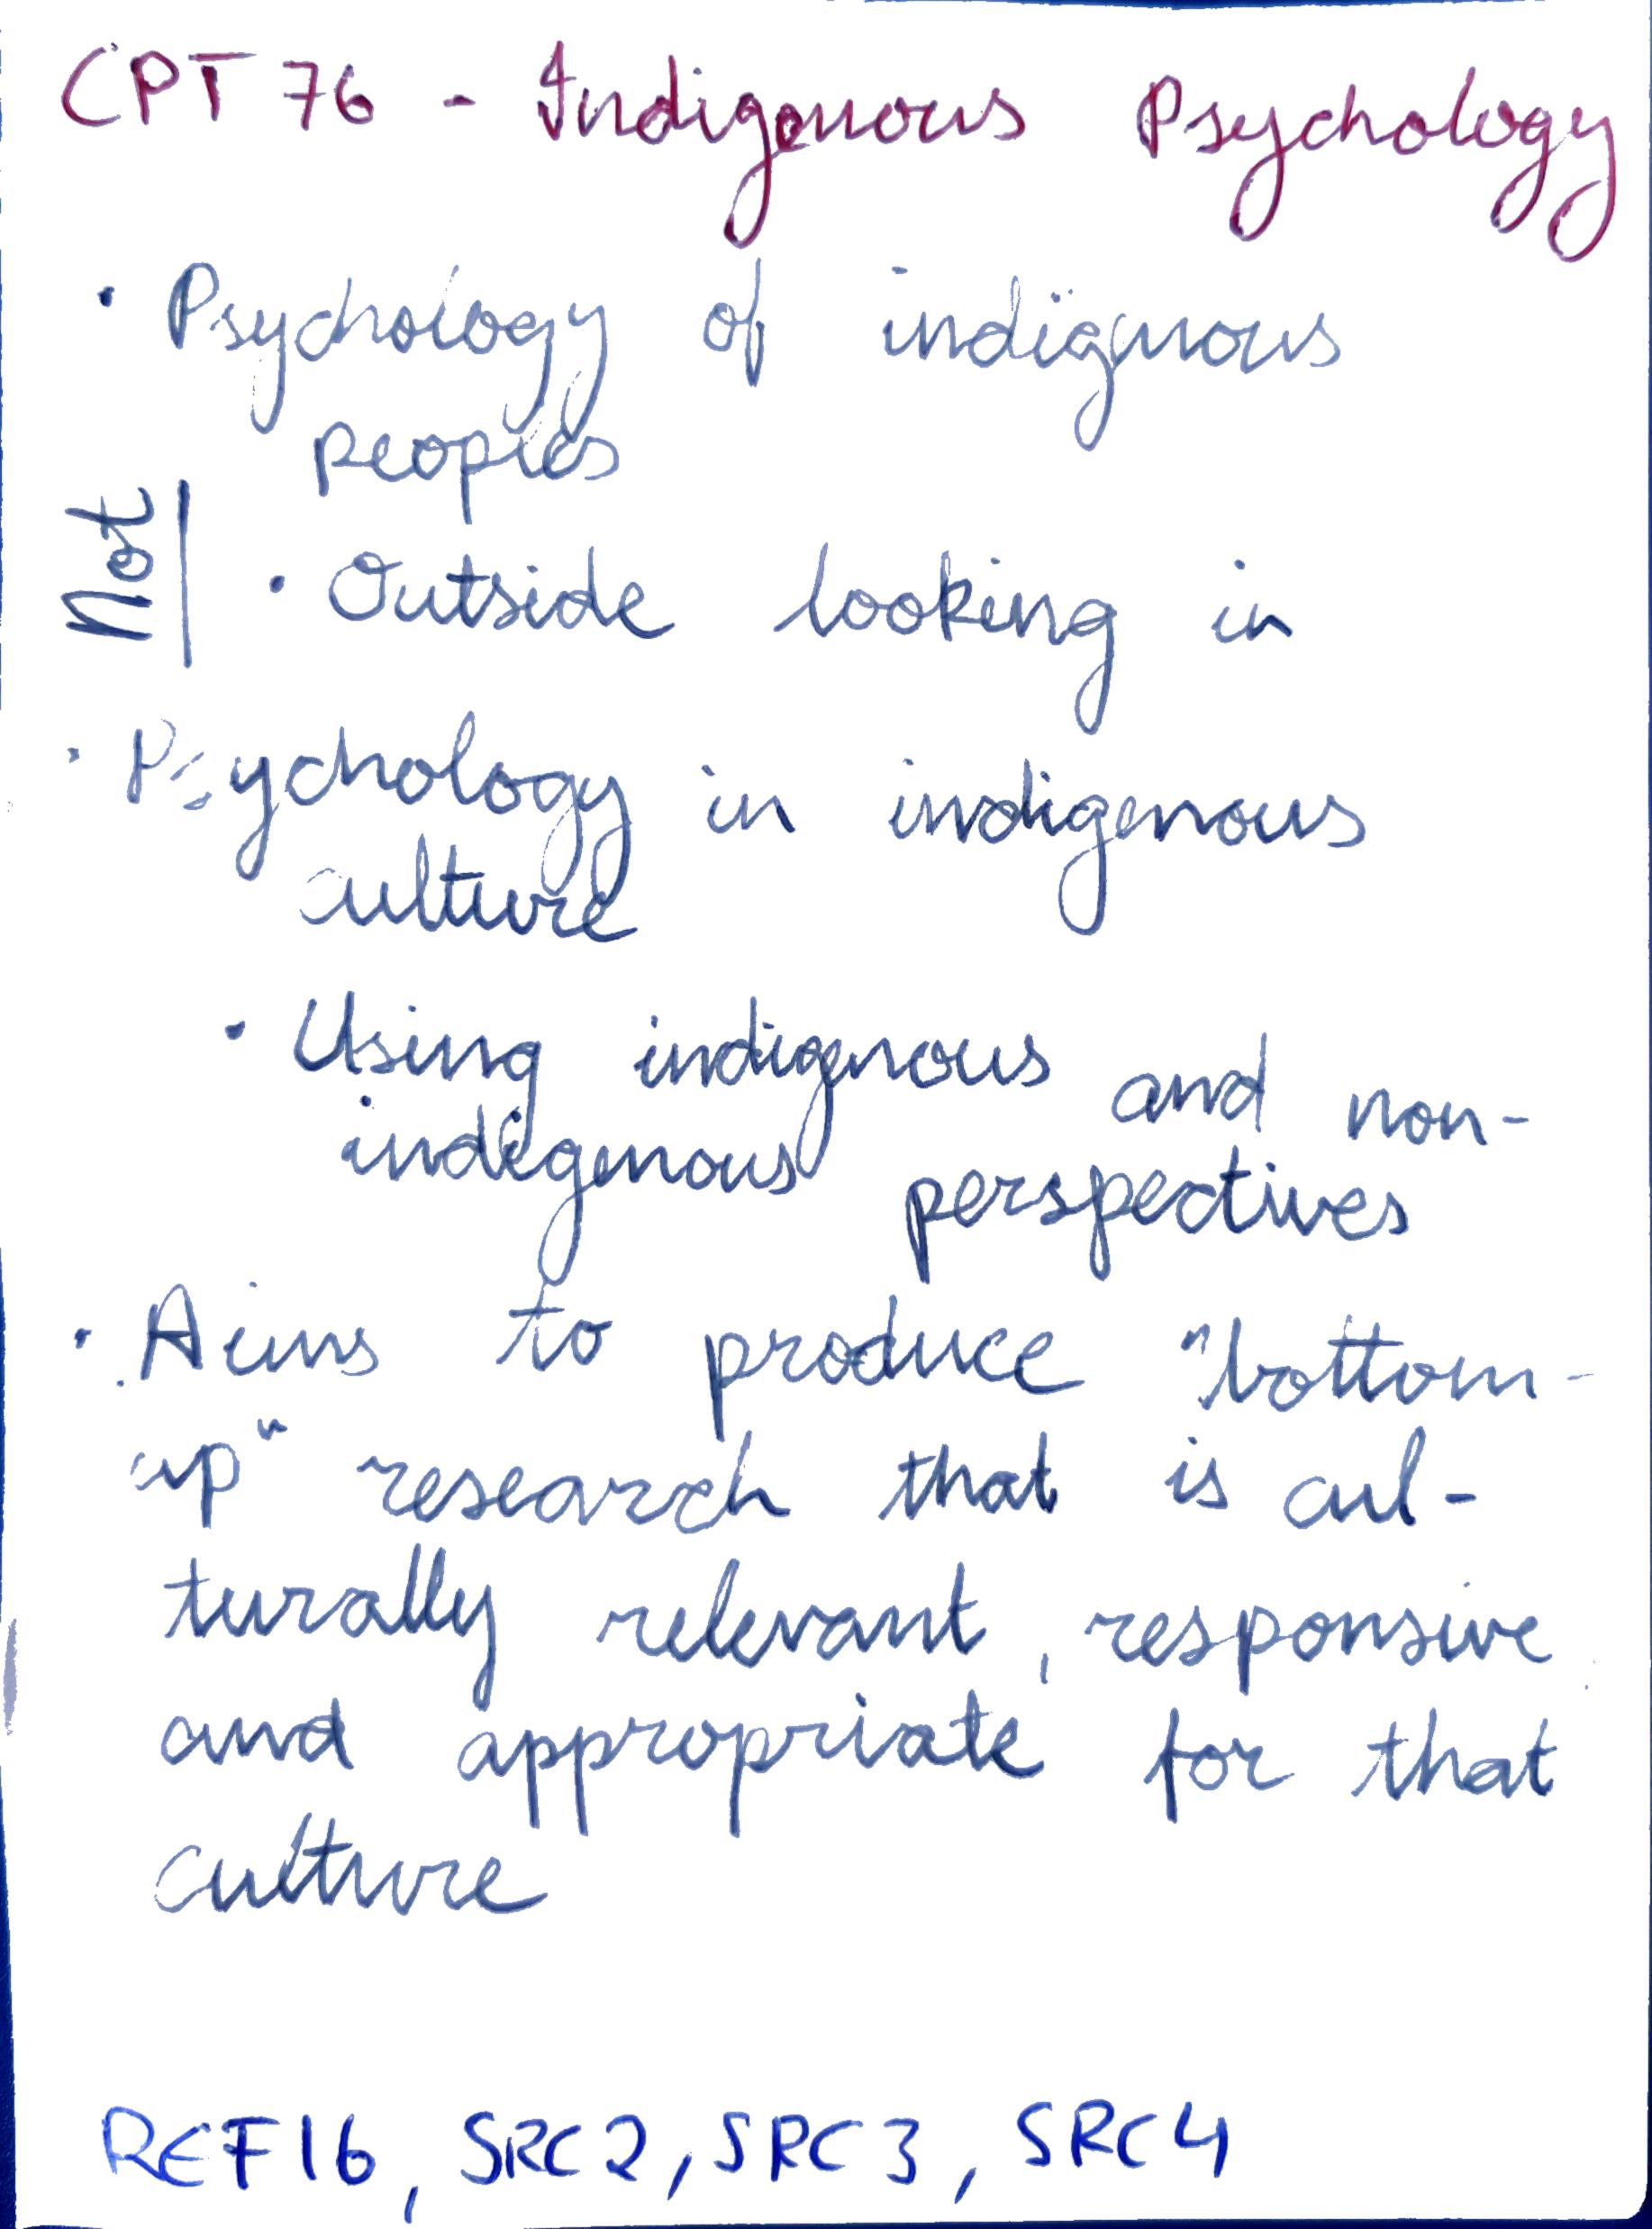 CPT 76 - Indigenous Psychology
· Psychology of indigenous
peoples
Not
· Outside looking in
· Psychology in indigenous
culture
· Using indigenous and non-
indigenous perspectives
· Aims to produce "bottom-
up" research that is cul-
turally relevant, responsive
and appropriate for that
culture
REF16, SRC2, SRC3, SRC4